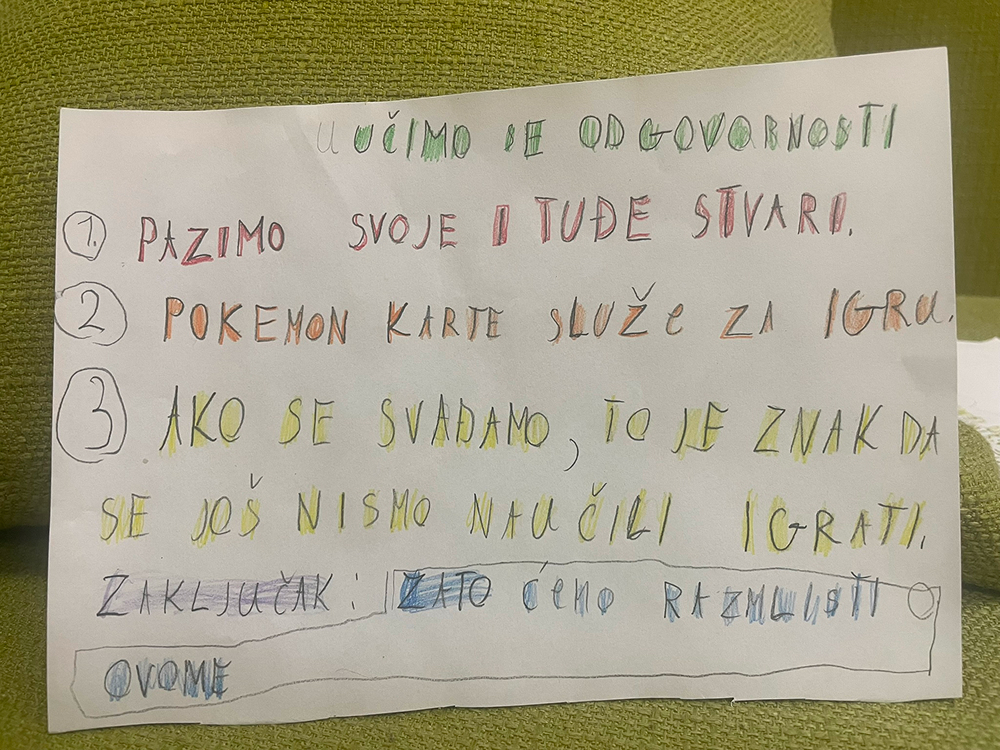 UČIMO SE ODGOVORNOSTI
1. PAZIMO SVOJE I TUĐE STVARI.
2 POKEMON KARTE SLUŽe ZA IGRU.
3 AKO SE SVAĐAMO, TO JE ZNAK DA
SE JOŠ NISMO NAUČILI IGRATI.
ZAKLJUČAK: ZATO ĆEMO RAZMLISTI O
OVOME